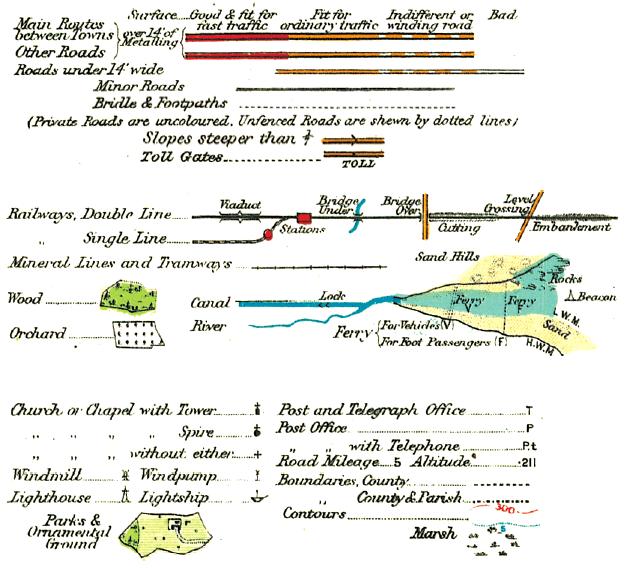 Surface Good & fit for Fit for Indifferent or Bad
fast traffic ordinary traffic winding road
Main Routes
between Towns
over 14' of
Metalling
Other Roads
Roads under 14' wide
Minor Roads
Bridle & Footpaths
(Private Roads are uncoloured, Unfenced Roads are shewn by dotted lines)
Slopes steeper than
Toll Gates
TOLL
Viaduct Bridge Under Bridge Over Level Crossing
Railways, Double Line
Stations Cutting Embankment
" Single Line
Mineral Lines and Tramways
Sand Hills
Rocks
Wood
Canal Lock Ferry Ferry Beacon
V F
L.W.M.
Orchard
River
Sand
Ferry For Vehicles (V)
For Foot Passengers (F)
H.W.M.
Church or Chapel with Tower
" " " " Spire
" " " " without either
Windmill Windpump
Lighthouse Lightship
Parks &
Ornamental
Ground
Post and Telegraph Office T
Post Office P
" " with Telephone P.t
Road Mileage 5 Altitude ·211
Boundaries, County
" County & Parish
Contours 300
5
Marsh